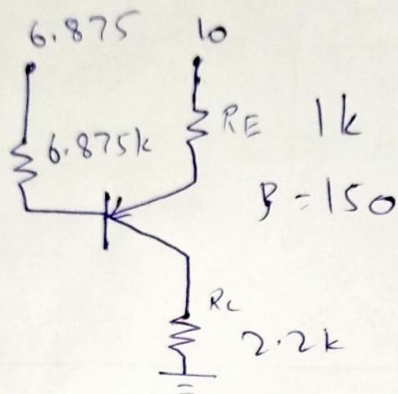 6.875 10
6.875k RE 1k
β = 150
RC
2.2k